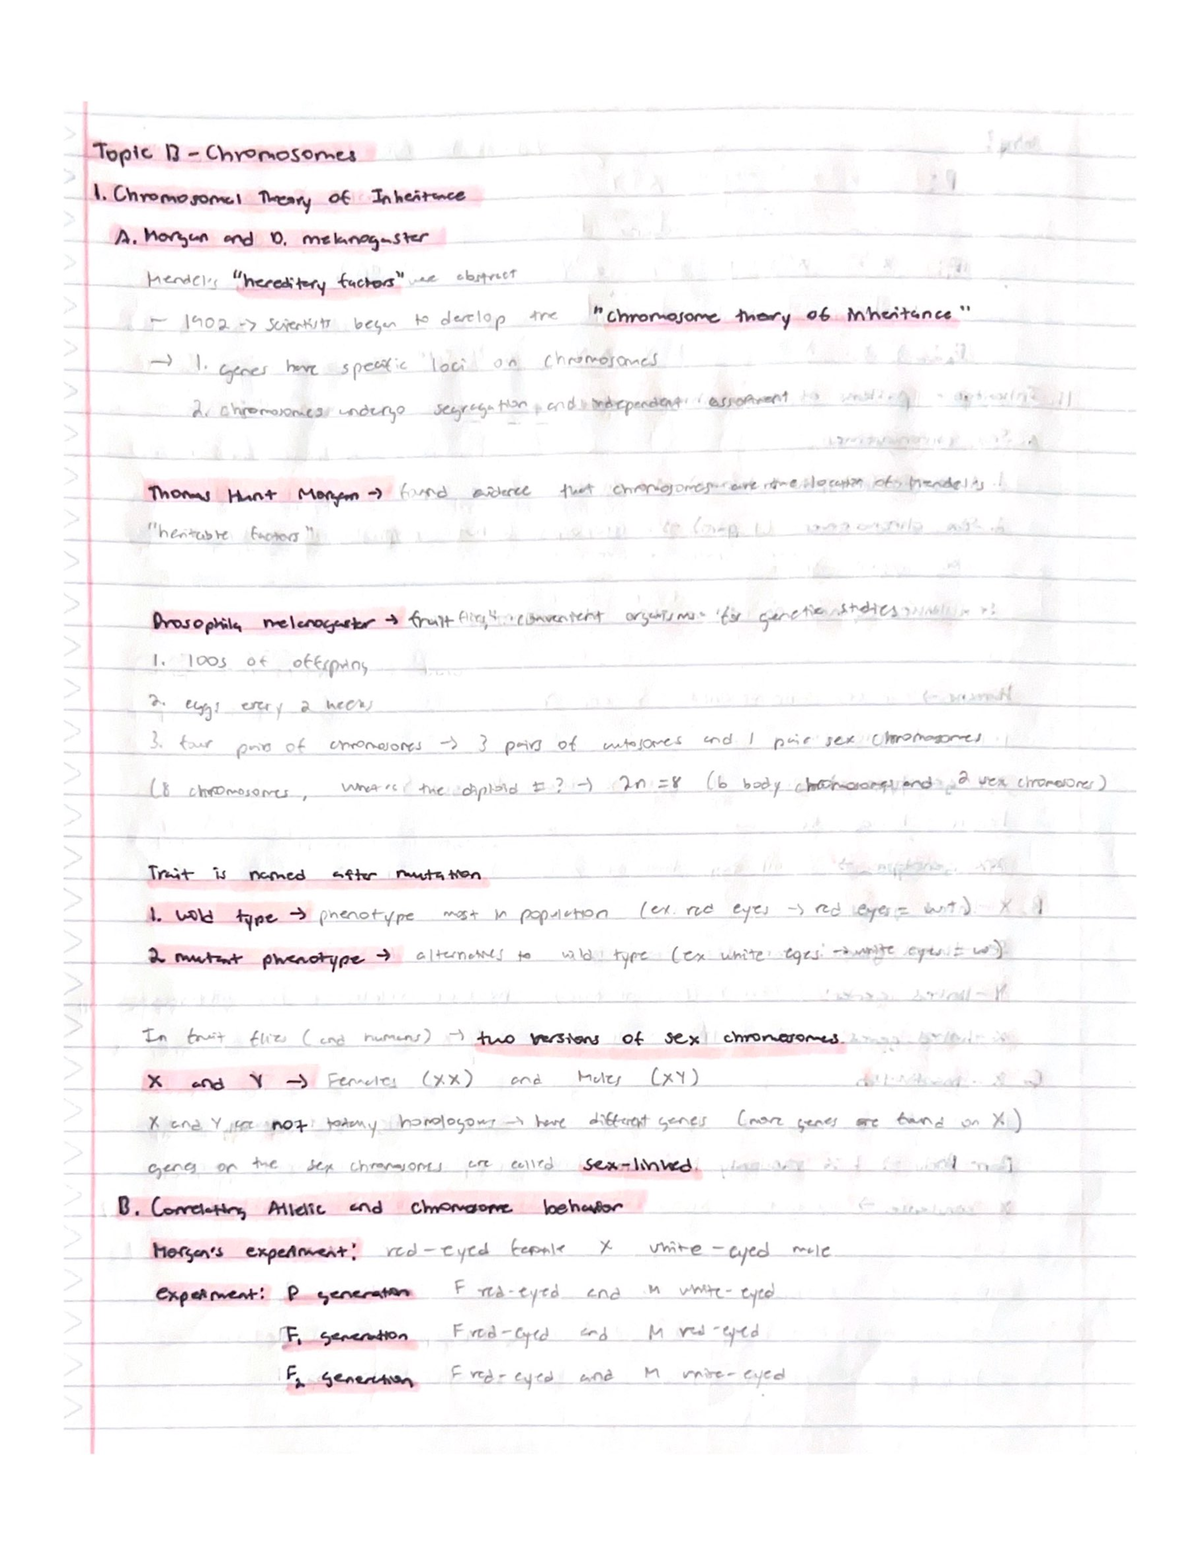 Topic 13 - Chromosomes
1. Chromosomal Theory of Inheritance
A. Morgan and D. melanogaster
Mendel's "hereditary factors" were abstract
- 1902 -> scientists began to develop the "chromosome theory of inheritance"
-> 1. genes have specific loci on chromosomes
2. chromosomes undergo segregation and independent assortment
Thomas Hunt Morgan -> found evidence that chromosomes are the location of Mendel's
"heritable factors"
Drosophila melanogaster -> fruit flies, convenient organisms for genetic studies
1. 100s of offspring
2. eggs every 2 weeks
3. four pairs of chromosomes -> 3 pairs of autosomes and 1 pair sex chromosomes
(8 chromosomes, what is the diploid #? -> 2n = 8 (6 body chromosomes and 2 sex chromosomes)
Trait is named after mutation
1. wild type -> phenotype most in population (ex. red eyes -> red eyes = wt)
2 mutant phenotype -> alternatives to wild type (ex white eyes -> white eyes = w)
In fruit flies (and humans) -> two versions of sex chromosomes.
X and Y -> Females (XX) and Males (XY)
X and Y are not totally homologous -> have different genes (more genes are found on X)
genes on the sex chromosomes are called sex-linked.
B. Correlating Allelic and chromosome behavior
Morgan's experiment: red-eyed female X white-eyed male
experiment: P generation F red-eyed and M white-eyed
F1 generation F red-eyed and M red-eyed
F2 generation F red-eyed and M white-eyed